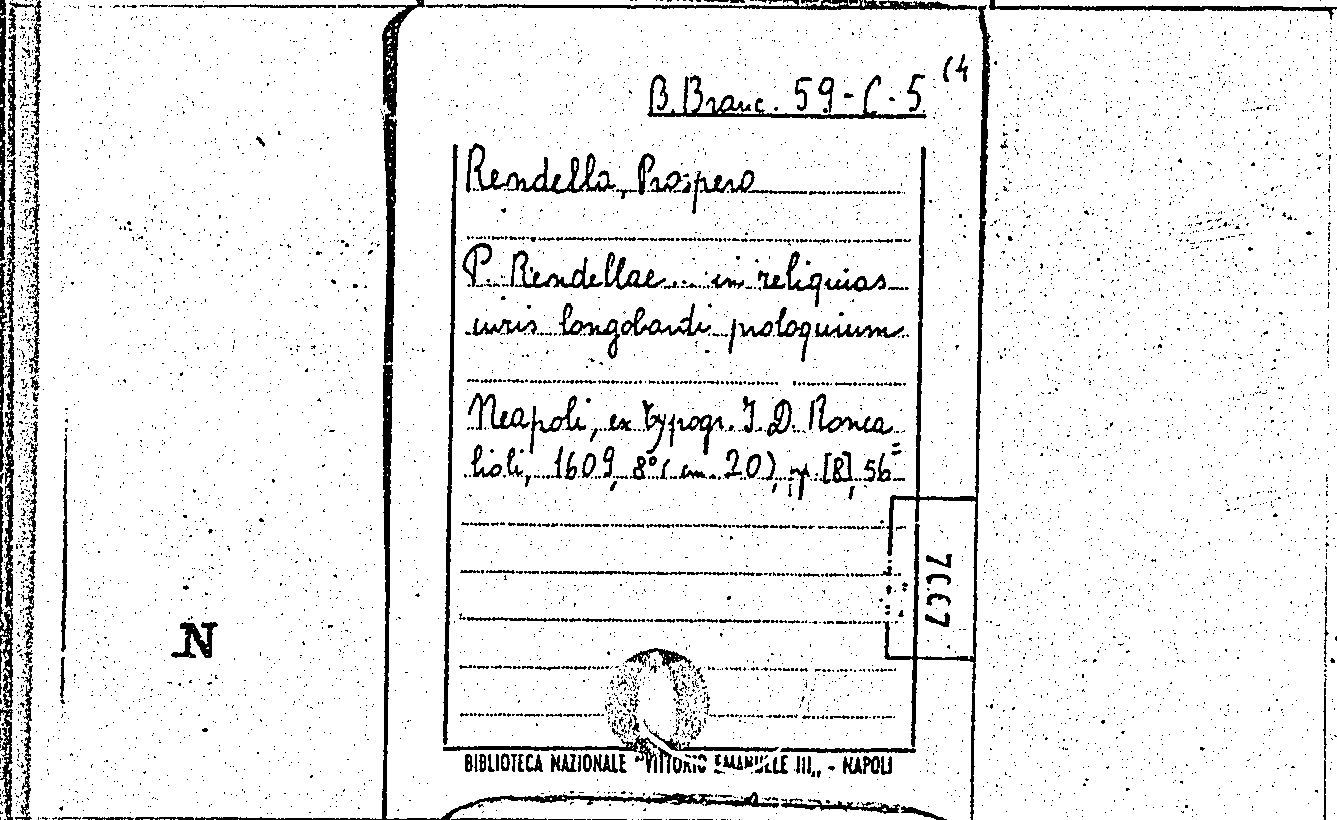 B. Branc. 59-C-5 (4
Rendella, Prospero
P. Rendellae... in reliquias
iuris longobardi proloquium
Neapoli, ex typogr. I. D. Ronca=
lioli, 1609, 8° (cm. 20), pp. [8], 56
N
BIBLIOTECA NAZIONALE "VITTORIO EMANUELE III,, - NAPOLI